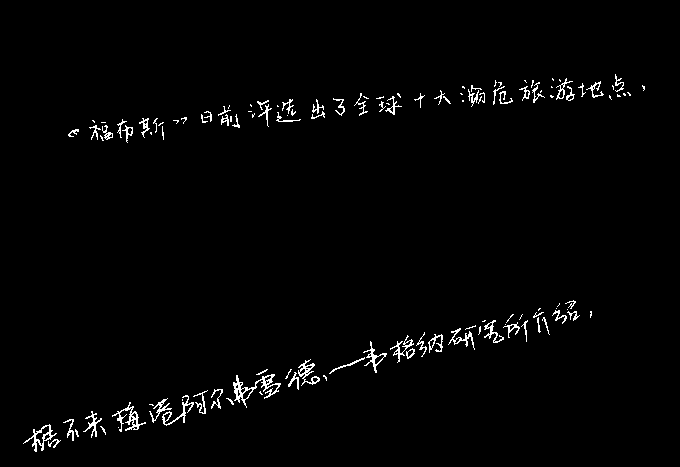 《福布斯》日前评选出了全球十大濒危旅游地点,
据不来梅港阿尔弗雷德·韦格纳研究所介绍,